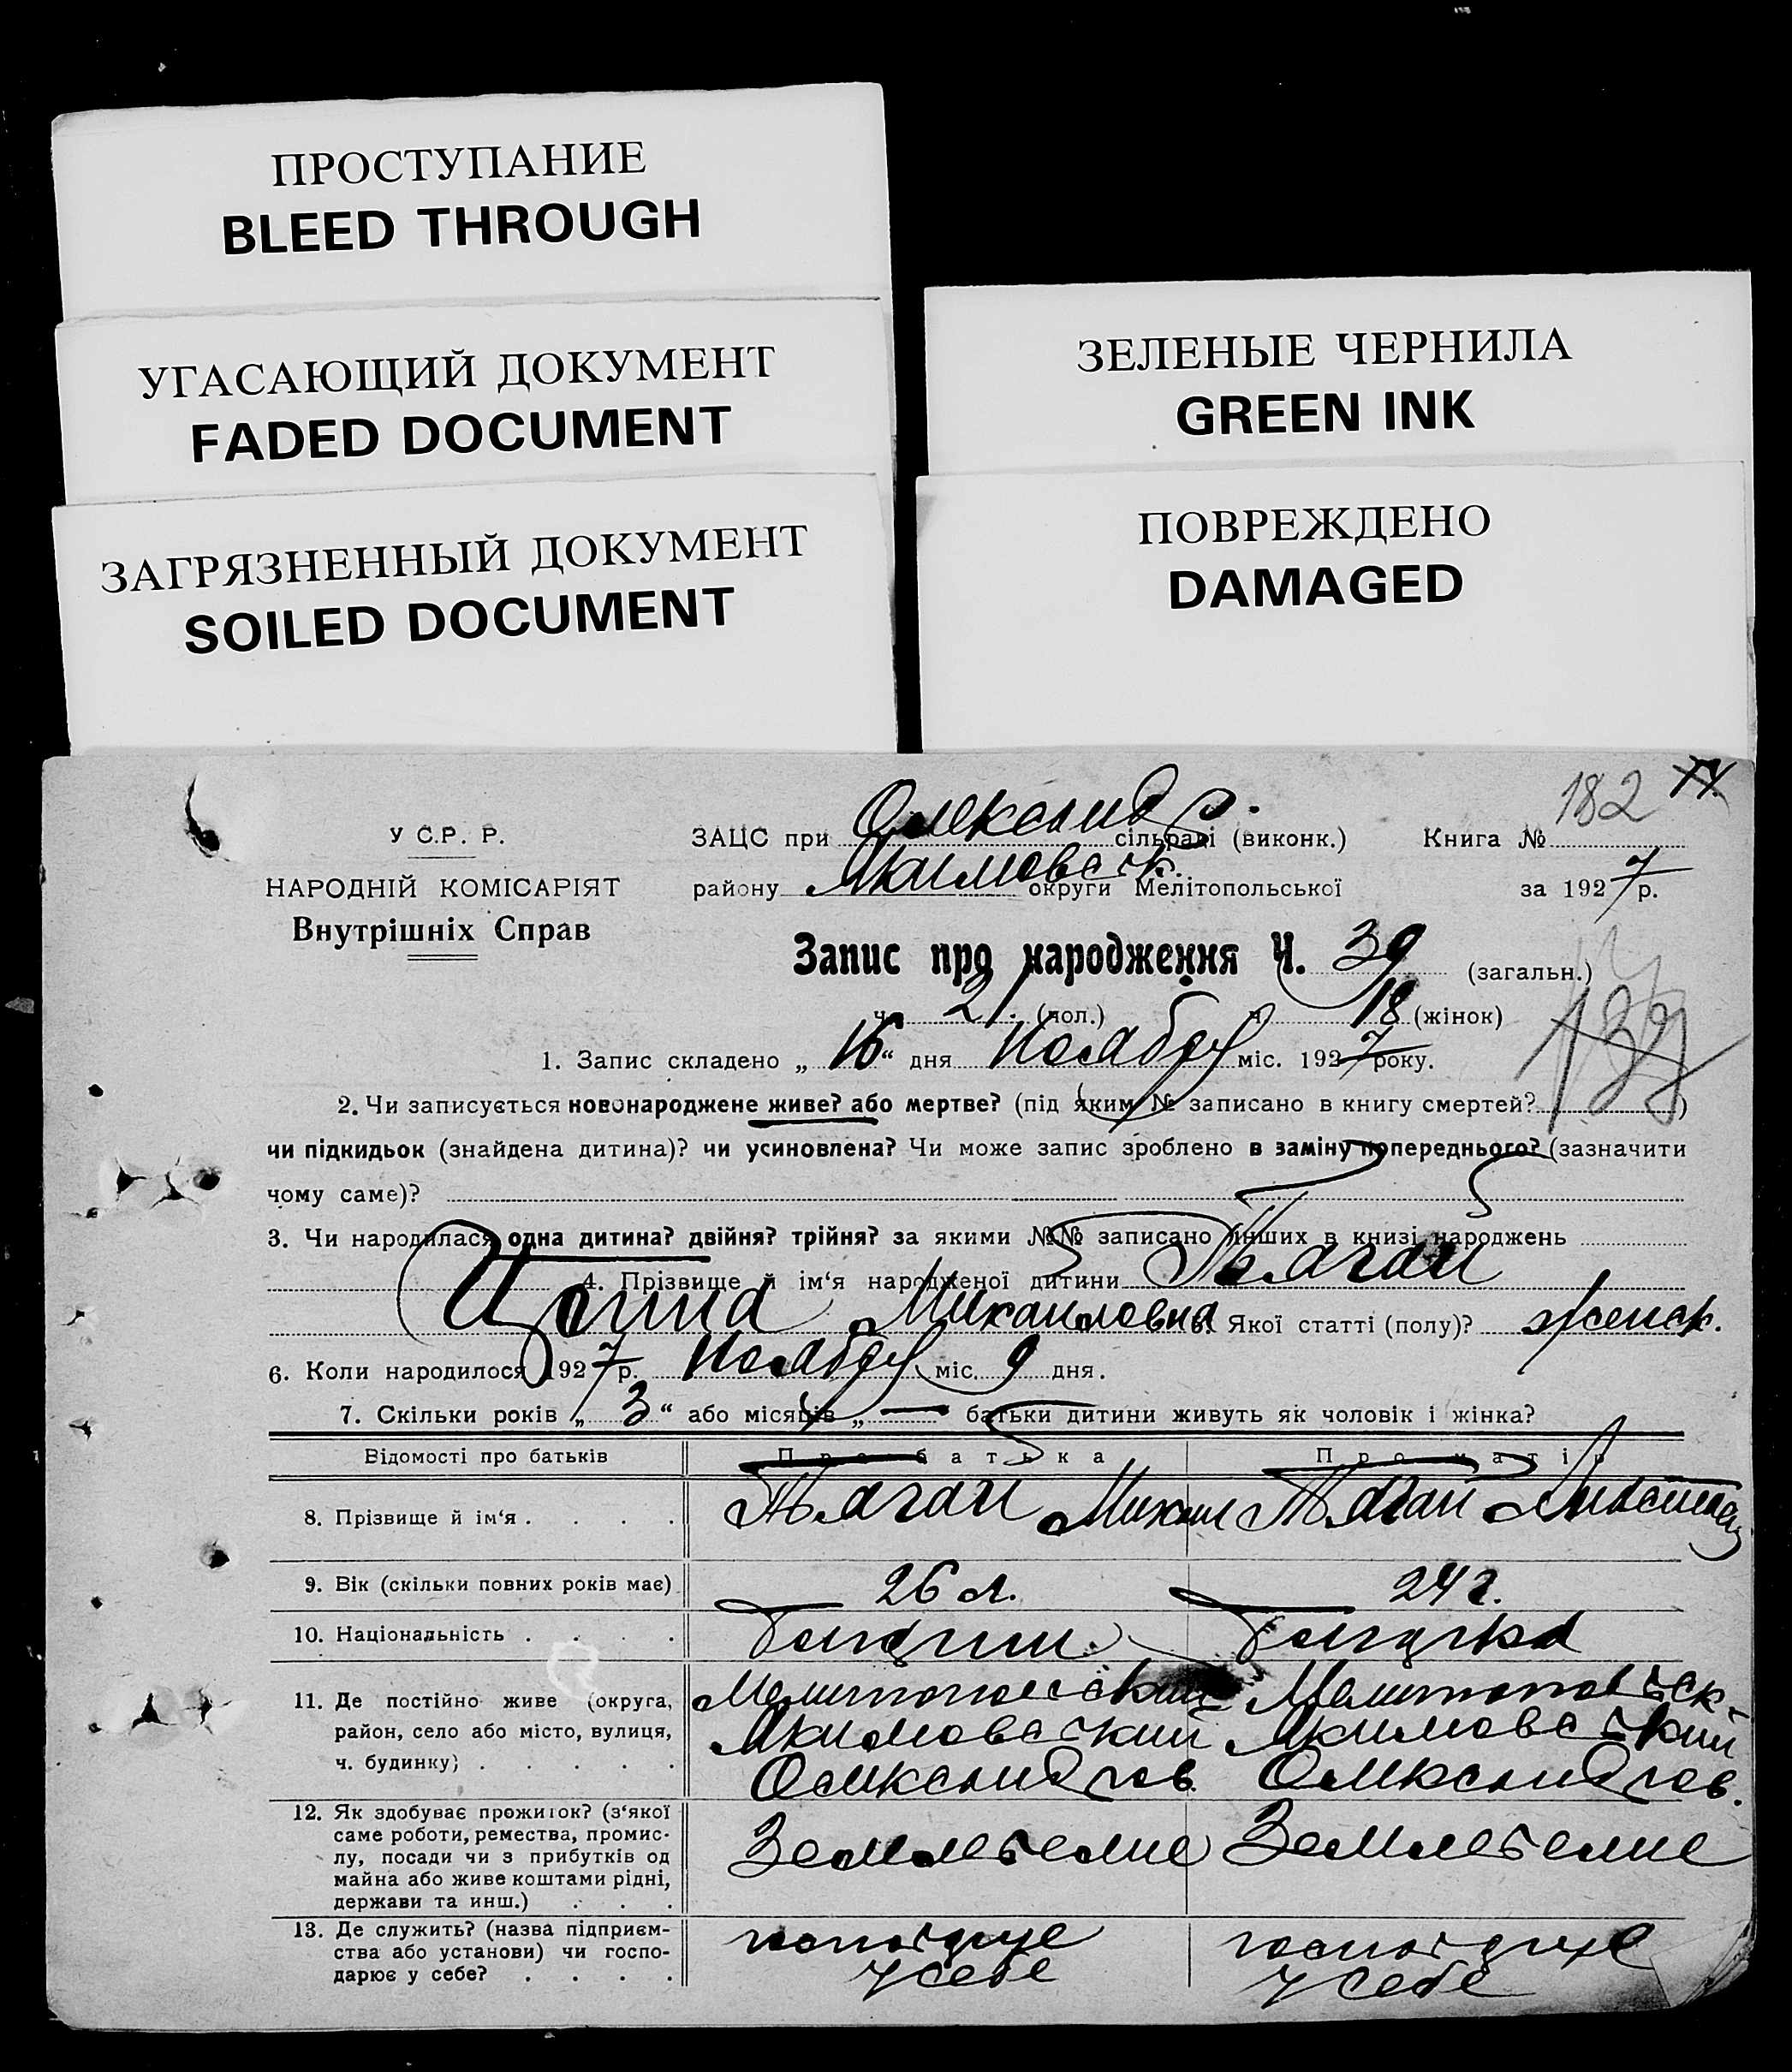 ПРОСТУПАНИЕ
BLEED THROUGH
УГАСАЮЩИЙ ДОКУМЕНТ
FADED DOCUMENT
ЗАГРЯЗНЕННЫЙ ДОКУМЕНТ
SOILED DOCUMENT
ЗЕЛЕНЫЕ ЧЕРНИЛА
GREEN INK
ПОВРЕЖДЕНО
DAMAGED
182
У С.Р. Р.
НАРОДНІЙ КОМІСАРІЯТ
Внутрішніх Справ
ЗАЦС при Олександр. сільраді (виконк.) Книга №
району Якимовськ. округи Мелітопольської за 1927 р.
Запис про народження Ч. 39 (загальн.)
ч. 21 (чол.) ч. 18 (жінок)
139
1. Запис складено „ 16 “ дня Ноября міс. 1927 року.
2. Чи записується новонароджене живе? або мертве? (під яким № записано в книгу смертей? )
чи підкидьок (знайдена дитина)? чи усиновлена? Чи може запис зроблено в заміну попереднього? (зазначити
чому саме)?
3. Чи народилася одна дитина? двійня? трійня? за якими №№ записано інших в книзі народжень
4. Прізвище й ім‘я народженої дитини
Михайловна 5. Якої статті (полу)? женск.
6. Коли народилося 1927 р. Ноября міс. 9 дня.
7. Скільки років „ 3 “ або місяців „ — “ батьки дитини живуть як чоловік і жінка?
Відомості про батьків Про батька Про матір
8. Прізвище й ім‘я . . . . Михаил
9. Вік (скільки повних років має) 26 л. 24 г.
10. Національність . . . . Болгарин Болгарка
11. Де постійно живе (округа, район, село або місто, вулиця, ч. будинку) . . . . .
Мелитопольский Мелитопольск.
Якимовський Якимовський
Олександров. Олександров.
12. Як здобуває прожиток? (з‘якої саме роботи, ремества, промислу, посади чи з прибутків од майна або живе коштами рідні, держави та инш.) . . .
Земледелие Земледелие
13. Де служить? (назва підприємства або установи) чи господарює у себе? . . . .
господарує господарує
у себе у себе